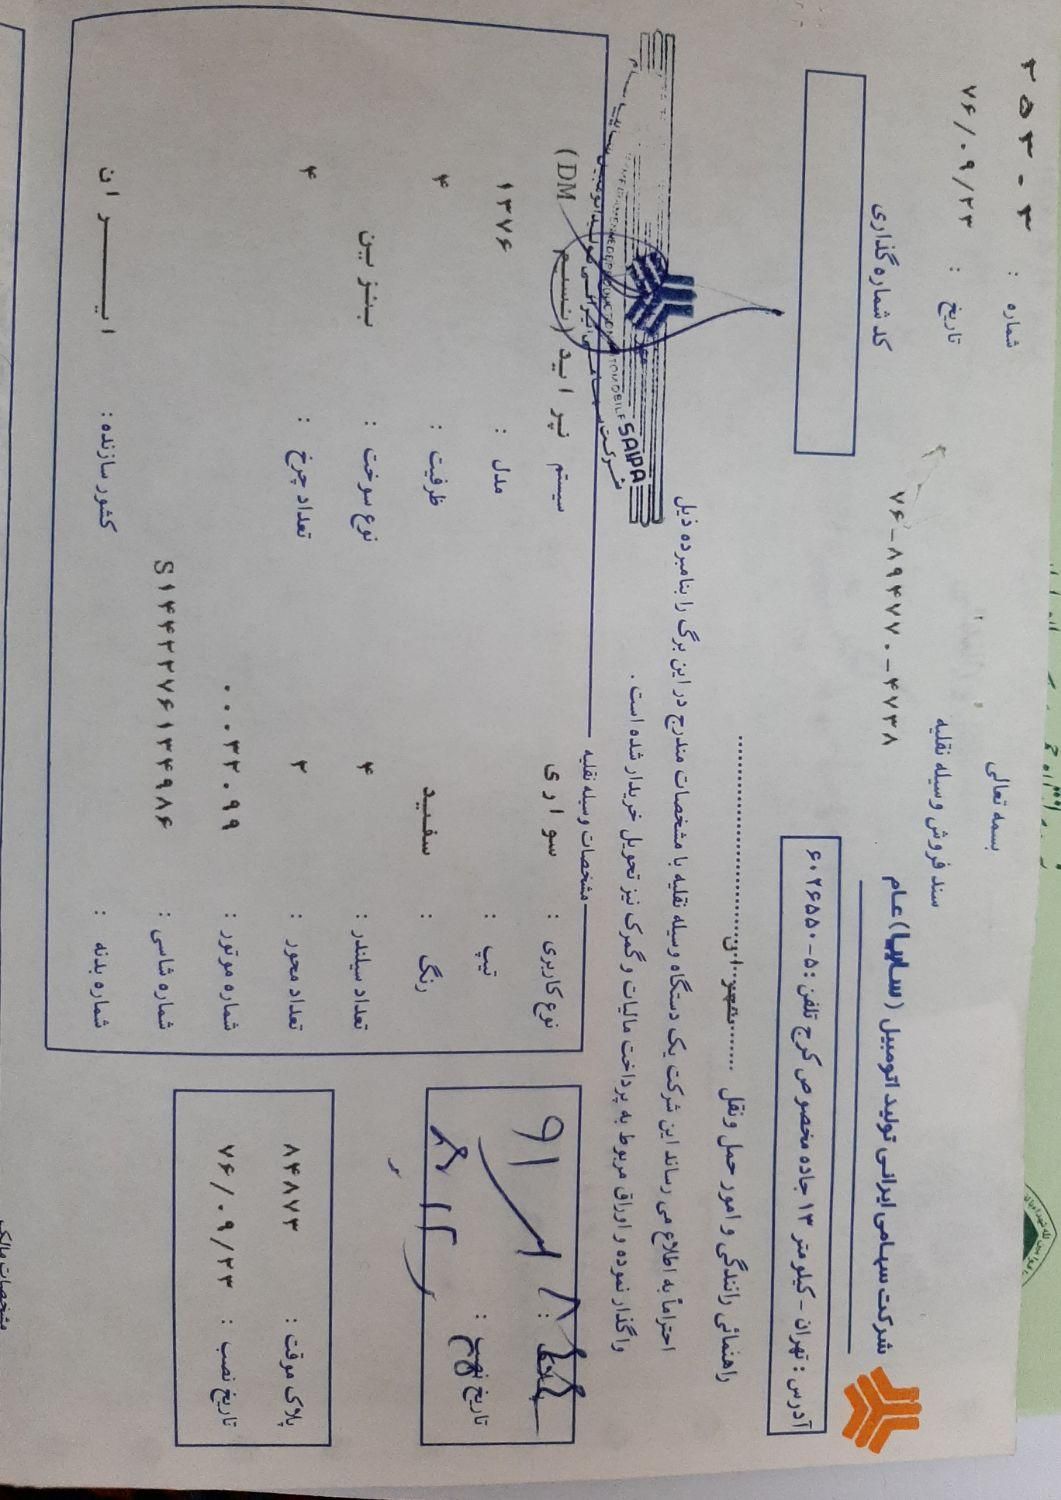 بسمه تعالی
سند فروش وسیله نقلیه
۷۶-۸۹۴۷۷۰-۴۷۳۸
تاریخ : ۷۶/۰۹/۲۳
شماره :
کد شماره گذاری
شرکت سهامی ایرانی تولید اتومبیل (سایپا) عام
آدرس : تهران - کیلومتر ۱۳ جاده مخصوص کرج تلفن : ۵-۶۰۲۶۵۵۰
راهنمائی رانندگی و امور حمل ونقل
احتراماً به اطلاع می رساند این شرکت یک دستگاه وسیله نقلیه با مشخصات مندرج در این برگ را بنامبرده ذیل
واگذار نموده و اوراق مربوط به پرداخت مالیات و گمرک نیز تحویل خریدار شده است .
SAIPA
مشخصات وسیله نقلیه
نوع کاربری : سواری
سیستم : پراید (نسیم DM)
تیپ :
مدل : ۱۳۷۶
رنگ : سفید
ظرفیت : ۴
تعداد سیلندر : ۴
نوع سوخت : بنزین
تعداد محور : ۲
تعداد چرخ : ۴
شماره موتور : ۰۰۰۳۳۰۹۹
شماره شاسی : S۱۴۴۲۲۷۶۱۳۴۹۸۶
شماره بدنه :
کشور سازنده : ایران
تاریخ نصب :
پلاک موقت : ۸۴۸۷۳
تاریخ نصب : ۷۶/۰۹/۲۳
مشخصات مالک